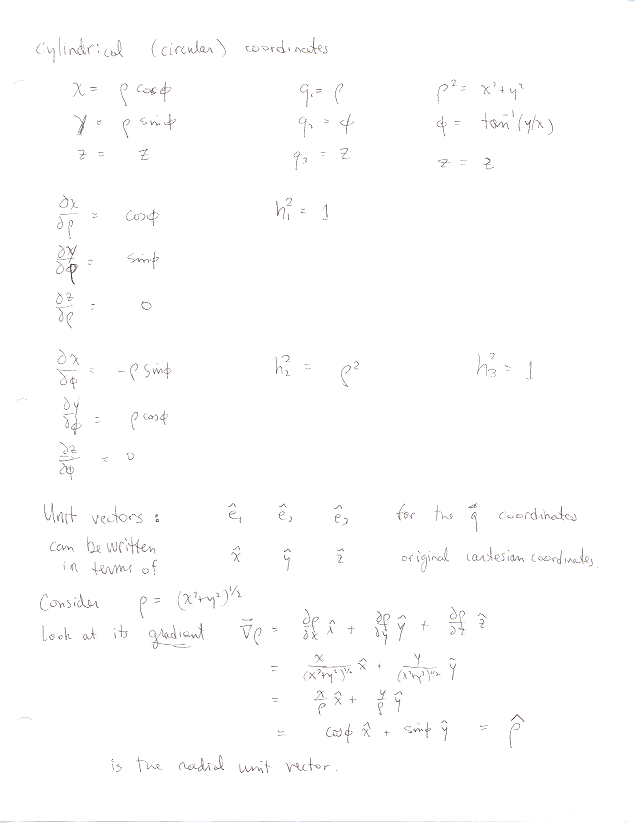 Cylindrical (circular) coordinates
x = ρ cosφ q₁ = ρ ρ² = x² + y²
y = ρ sinφ q₂ = φ φ = tan⁻¹(y/x)
z = z q₃ = z z = z
∂x/∂ρ = cosφ h₁² = 1
∂y/∂ρ = sinφ
∂z/∂ρ = 0
∂x/∂φ = -ρ sinφ h₂² = ρ² h₃² = 1
∂y/∂φ = ρ cosφ
∂z/∂φ = 0
Unit vectors : ê₁ ê₂ ê₃ for the q coordinates
can be written x̂ ŷ ẑ original cartesian coordinates.
in terms of
Consider ρ = (x²+y²)^1/2
Look at its gradient ∇⃗ρ = ∂ρ/∂x x̂ + ∂ρ/∂y ŷ + ∂ρ/∂z ẑ
= x/(x²+y²)^1/2 x̂ + y/(x²+y²)^1/2 ŷ
= x/ρ x̂ + y/ρ ŷ
= cosφ x̂ + sinφ ŷ = ρ̂
is the radial unit vector.